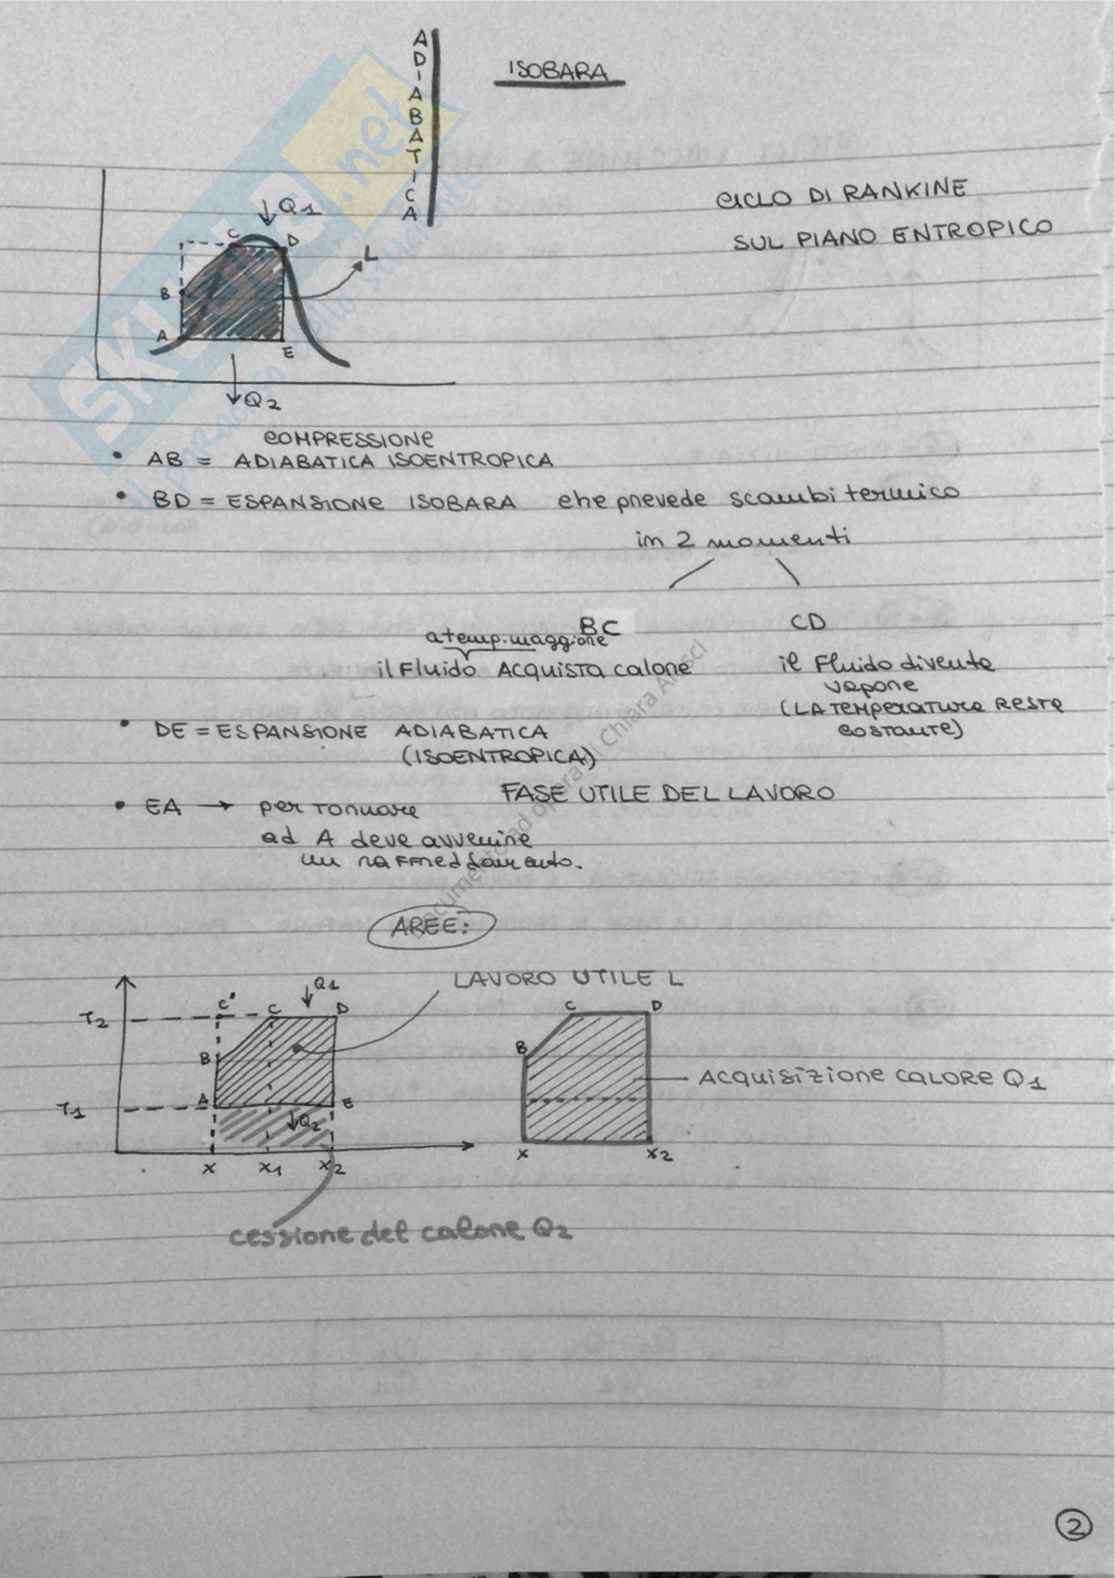 ADIABATICA
ISOBARA
CICLO DI RANKINE
SUL PIANO ENTROPICO
Q1
C
D
L
B
A
E
Q2
COMPRESSIONE
• AB = ADIABATICA ISOENTROPICA
• BD = ESPANSIONE ISOBARA che prevede scambi termico
in 2 momenti
BC
CD
a temp. maggiore
il Fluido ACQUISTA calore
il Fluido diventa
vapore
(LA TEMPERATURA RESTA
COSTANTE)
• DE = ESPANSIONE ADIABATICA
(ISOENTROPICA)
FASE UTILE DEL LAVORO
• EA → per TORNARE
ad A deve avvenire
un raffreddamento.
AREE:
LAVORO UTILE L
Q1
C'
C
D
T2
B
A
E
T1
Q2
X
X1
X2
cessione del calore Q2
C
D
B
ACQUISIZIONE CALORE Q1
X
X2
2
SKUOLA.net
Documento ad opera di Chiara